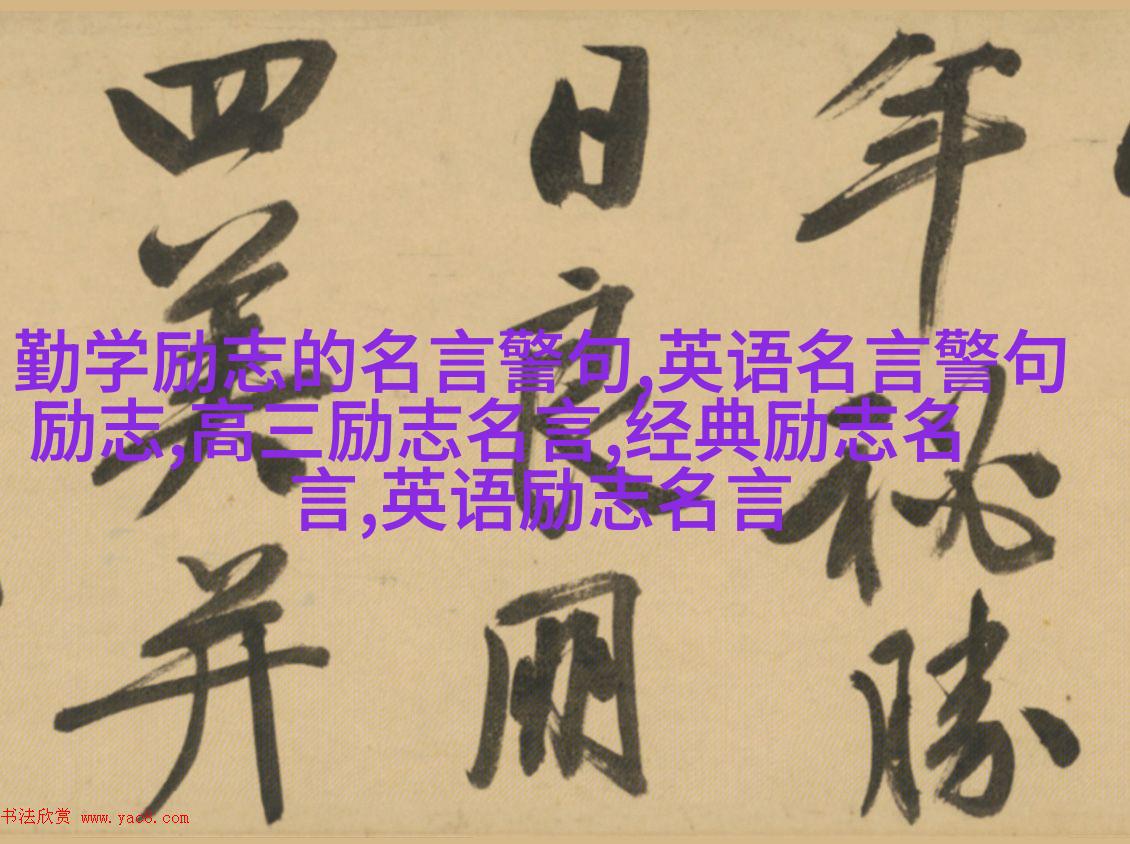 年秘勝
日良朋
四美并
勤学励志的名言警句,英语名言警句
励志,高三励志名言,经典励志名
言,英语励志名言
书法欣赏 www.yac8.com